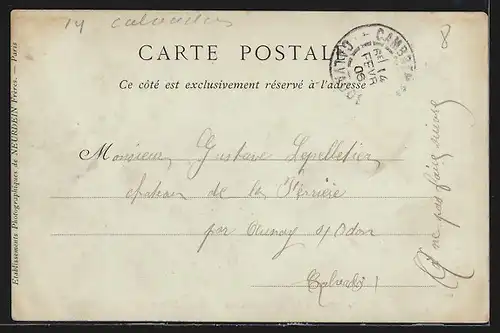 14 calvados
8
CARTE POSTALE
Ce côté est exclusivement réservé à l'adresse
CAMBREMER
14
FEVR
CALVADOS
Monsieur Gustave Lepelletier
château de la Ferrière
par Aunay s/ Odon
Calvados
à ne pas faire suivre
Etablissements Photographiques de NEURDEIN Frères. - Paris